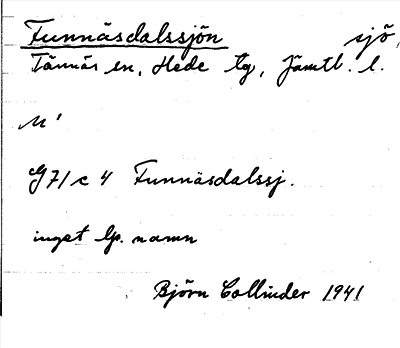 Funnäsdalssjön sjö,
Tännäs sn, Hede tg, Jämtl. l.
M'
G 71 c 4 Funnäsdalssj.
inget lp. namn
Björn Collinder 1941